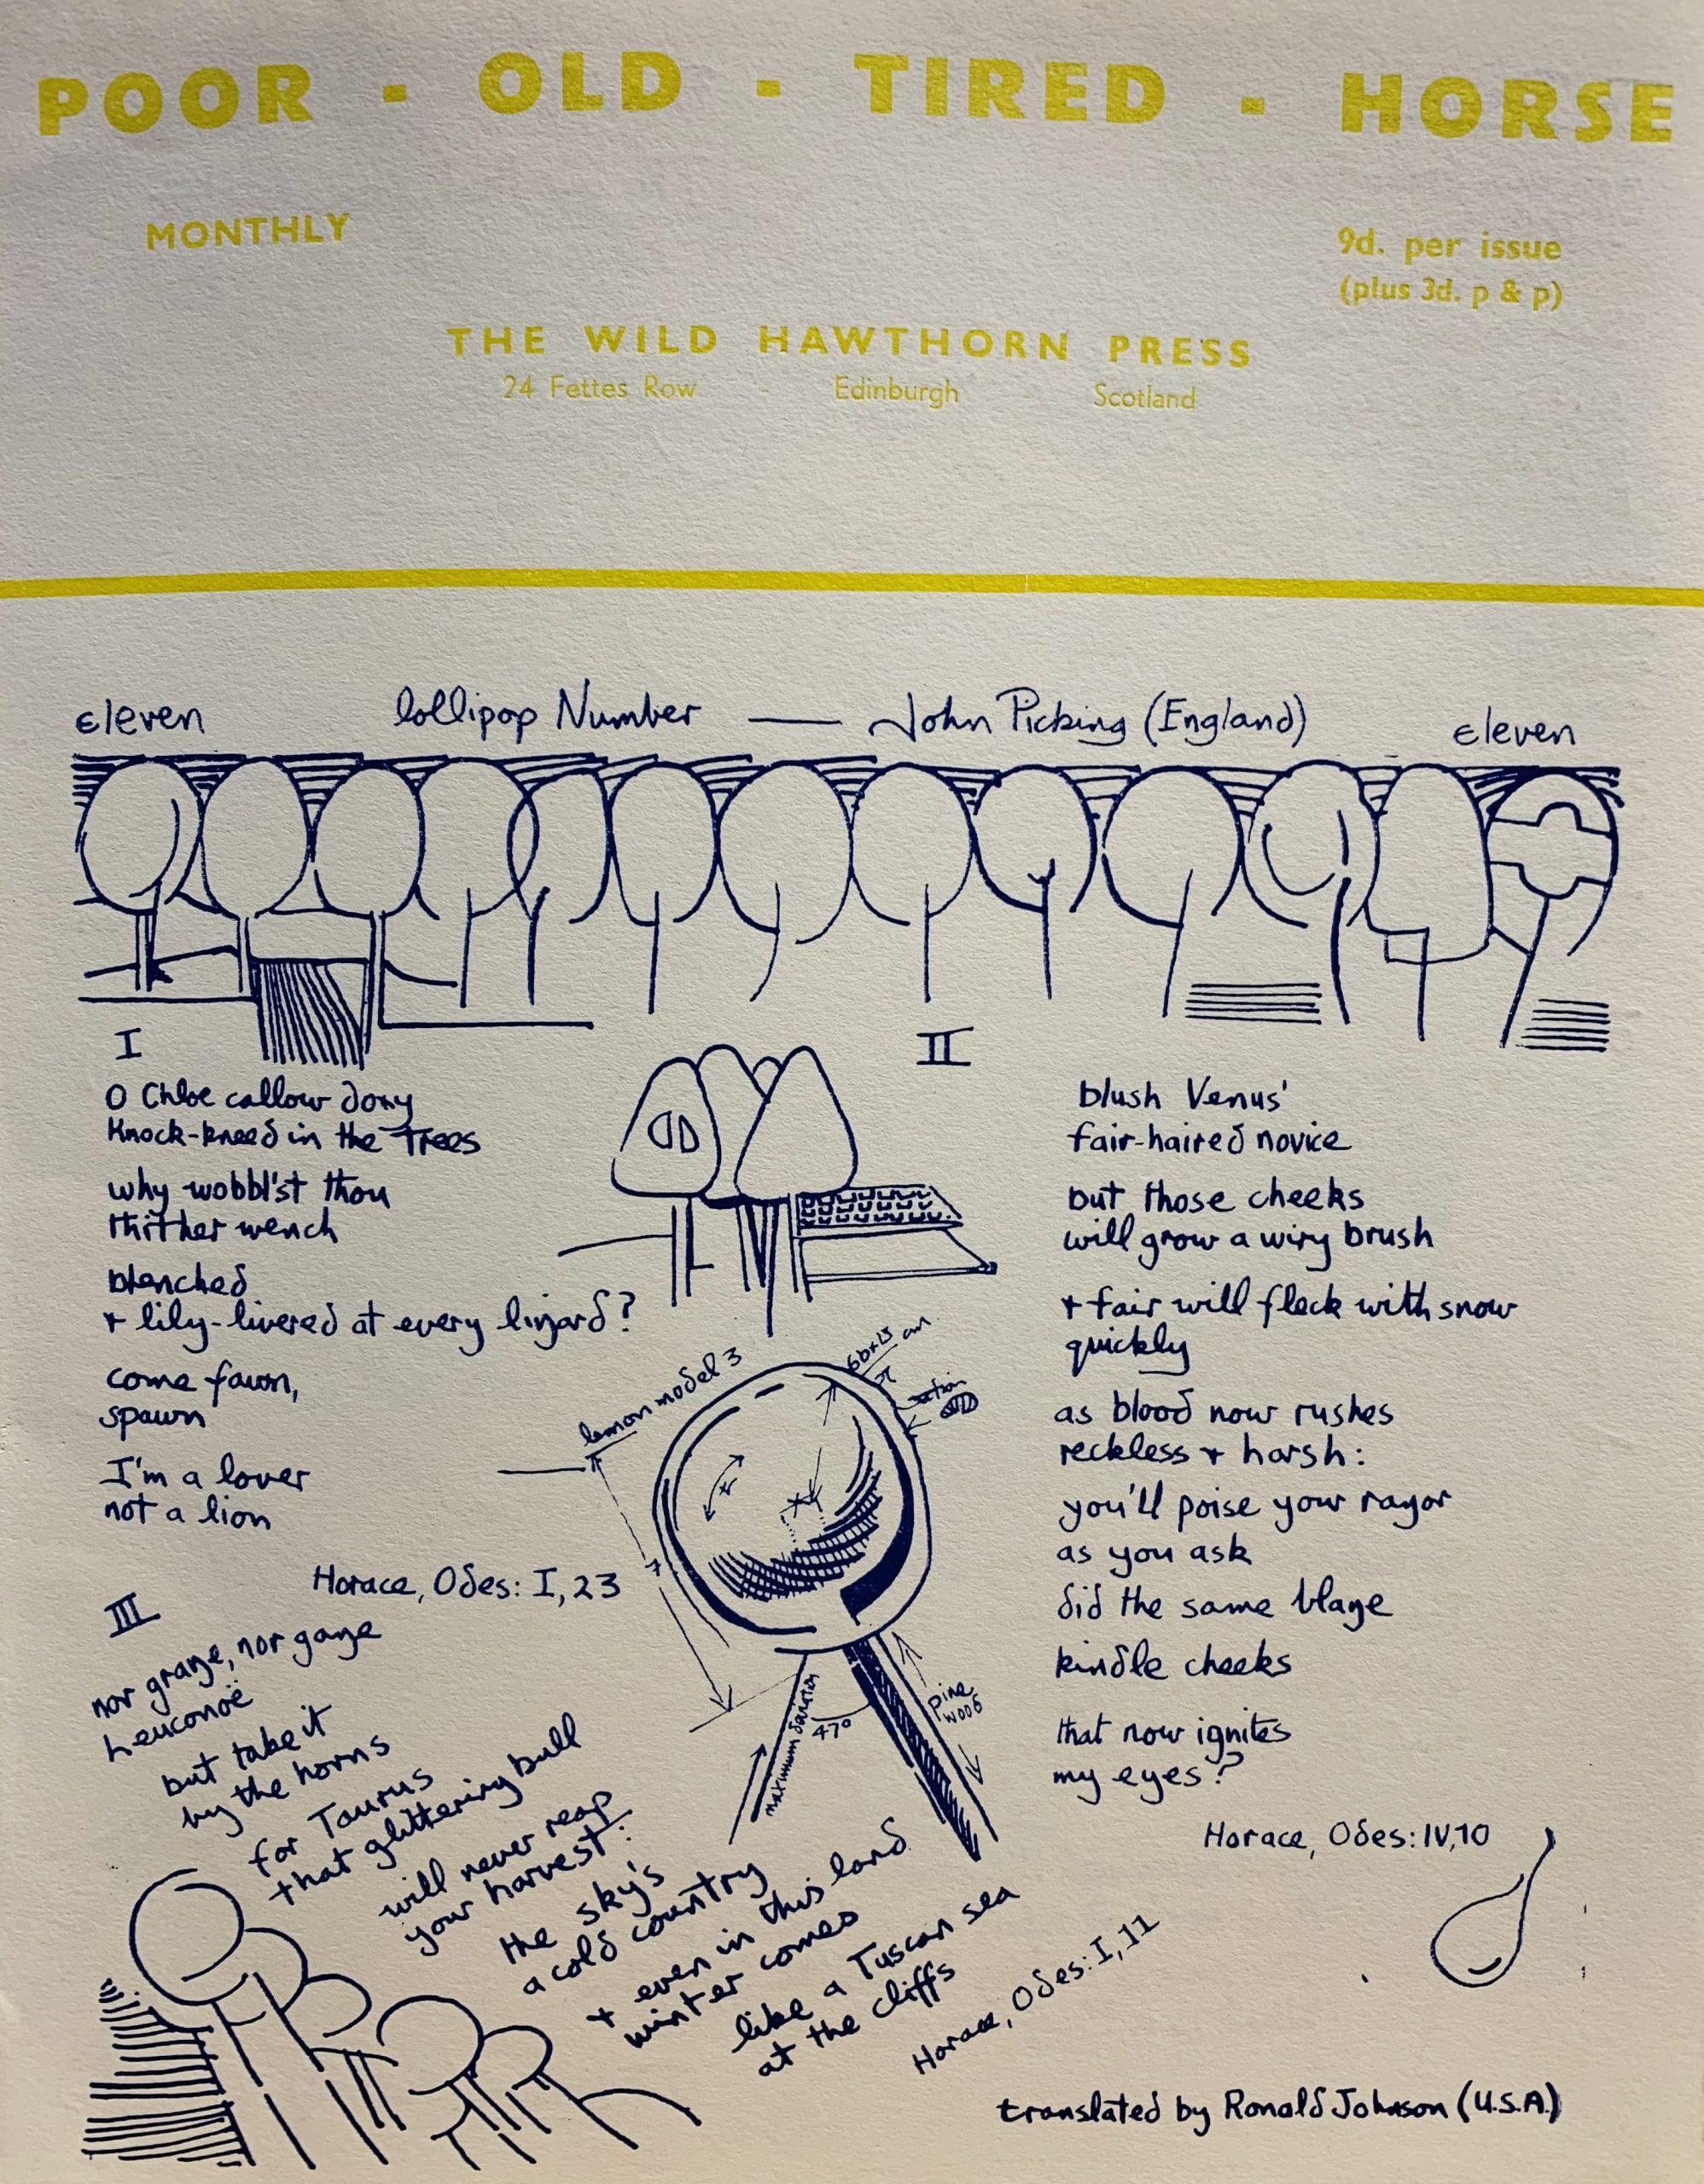 POOR - OLD - TIRED - HORSE
MONTHLY
9d. per issue
(plus 3d. p & p)
THE WILD HAWTHORN PRESS
24 Fettes Row - Edinburgh Scotland
eleven lollipop Number — John Picking (England) eleven
I
O Chloe callow doxy
knock-kneed in the trees
why wobbl'st thou
thither wench
blenched
+ lily-livered at every lizard?
come fawn,
spawn
I'm a lover
not a lion
Horace, Odes: I, 23
II
blush Venus'
fair-haired novice
but those cheeks
will grow a wiry brush
+ fair will fleck with snow
quickly
as blood now rushes
reckless + harsh:
you'll poise your razor
as you ask
did the same blaze
kindle cheeks
that now ignites
my eyes?
Horace, Odes: IV, 10
lemon model 3
section
pine
wood
47°
maximum
III
nor graze, nor gaze
Leuconoë
but take it
by the horns
for Taurus
that glittering bull
will never reap
your harvest:
the sky's
a cold country
+ even in this land
winter comes
like a Tuscan sea
at the cliffs
Horace, Odes: I, 11
translated by Ronald Johnson (U.S.A.)